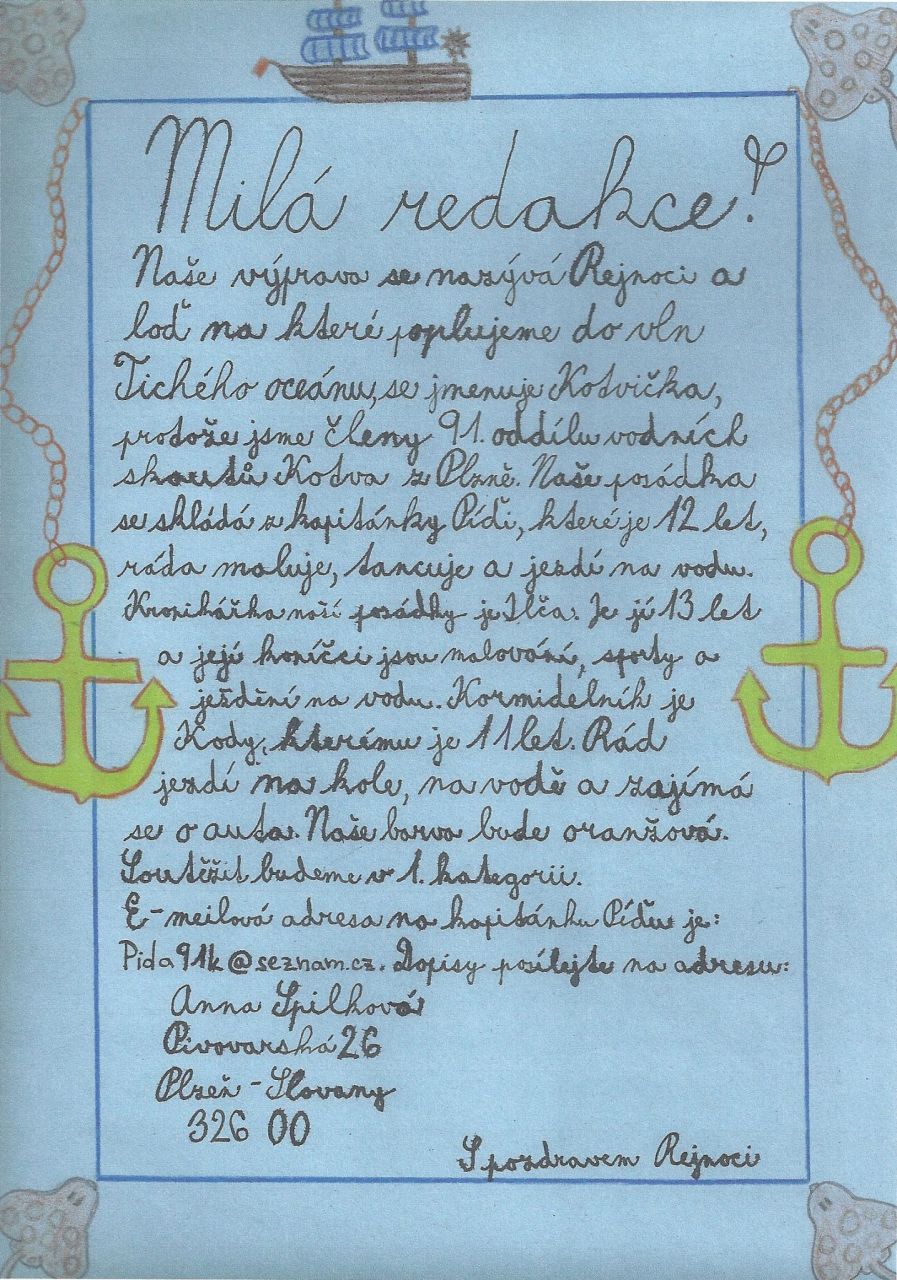 Milá redakce!
Naše výprava se nazývá Rejnoci a
loď na které poplujeme do vln
Tichého oceánu, se jmenuje Kotvička,
protože jsme členy 91. oddílu vodních
skautů Kotva z Plzně. Naše posádka
se skládá z kapitánky Píďi, které je 12 let,
ráda maluje, tancuje a jezdí na vodu.
Kronikářka naší posádky je Ilča. Je jí 13 let
a její koníčci jsou malování, sporty a
ježdění na vodu. Kormidelník je
Kody, kterému je 11 let. Rád
jezdí na kole, na vodě a zajímá
se o auta. Naše barva bude oranžová.
Soutěžit budeme v 1. kategorii.
E-meilová adresa na kapitánku Píďu je:
Pida91k@seznam.cz. Dopisy posílejte na adresu:
Anna Spilková
Pivovarská 26
Plzeň - Slovany
326 00
S pozdravem Rejnoci